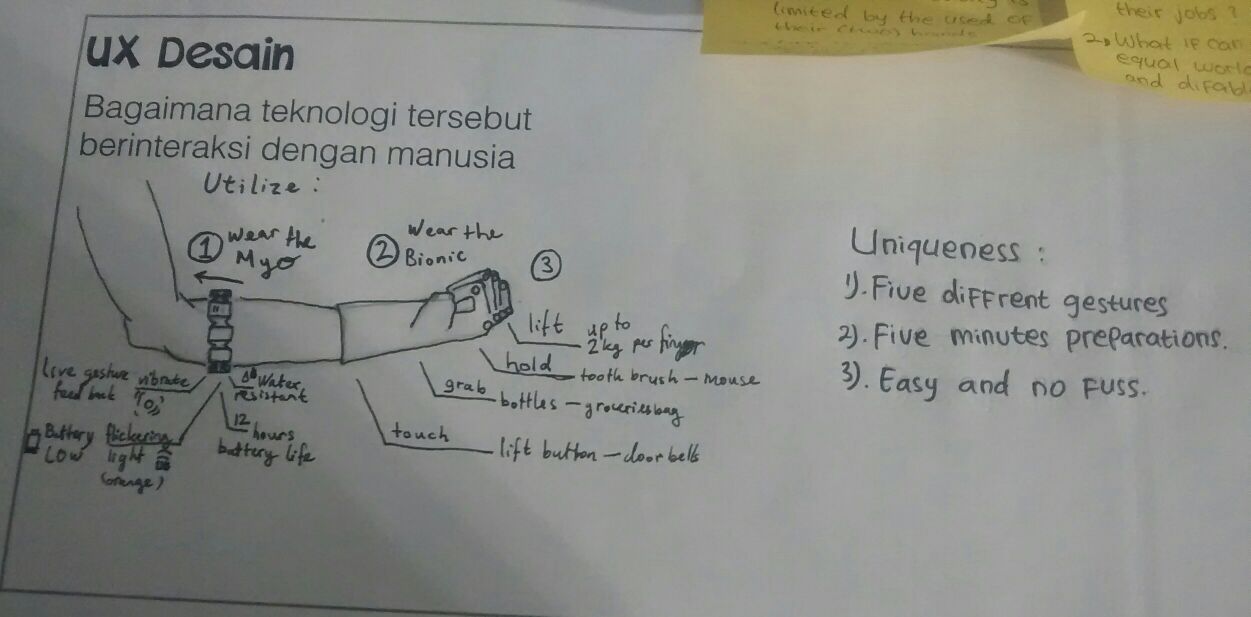 limited by the used of
their (two) hands
their jobs?
2) What if can
equal world
and difabl
UX Desain
Bagaimana teknologi tersebut
berinteraksi dengan manusia
Utilize :
1 Wear the
Myo
2 Wear the
Bionic
3
lift up to
2 kg per finger
hold
tooth brush – mouse
grab
bottles – groceries bag
touch
lift button – door bells
Live gesture vibrate
feed back
Water
resistant
12
hours
buttery life
Buttery flickering
LOW light
(orange)
Uniqueness :
1). Five diffrent gestures
2). Five minutes preparations.
3). Easy and no fuss.